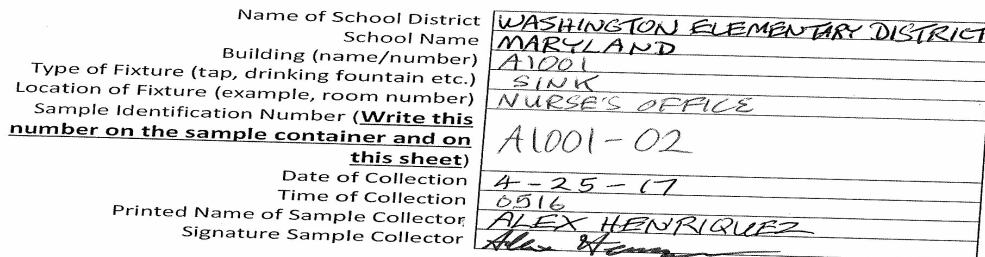 Name of School District WASHINGTON ELEMENTARY DISTRICT
School Name MARYLAND
Building (name/number) A1001
Type of Fixture (tap, drinking fountain etc.) SINK
Location of Fixture (example, room number) NURSE'S OFFICE
Sample Identification Number (Write this
number on the sample container and on
this sheet) A1001-02
Date of Collection 4-25-17
Time of Collection 0516
Printed Name of Sample Collector ALEX HENRIQUEZ
Signature Sample Collector Alex